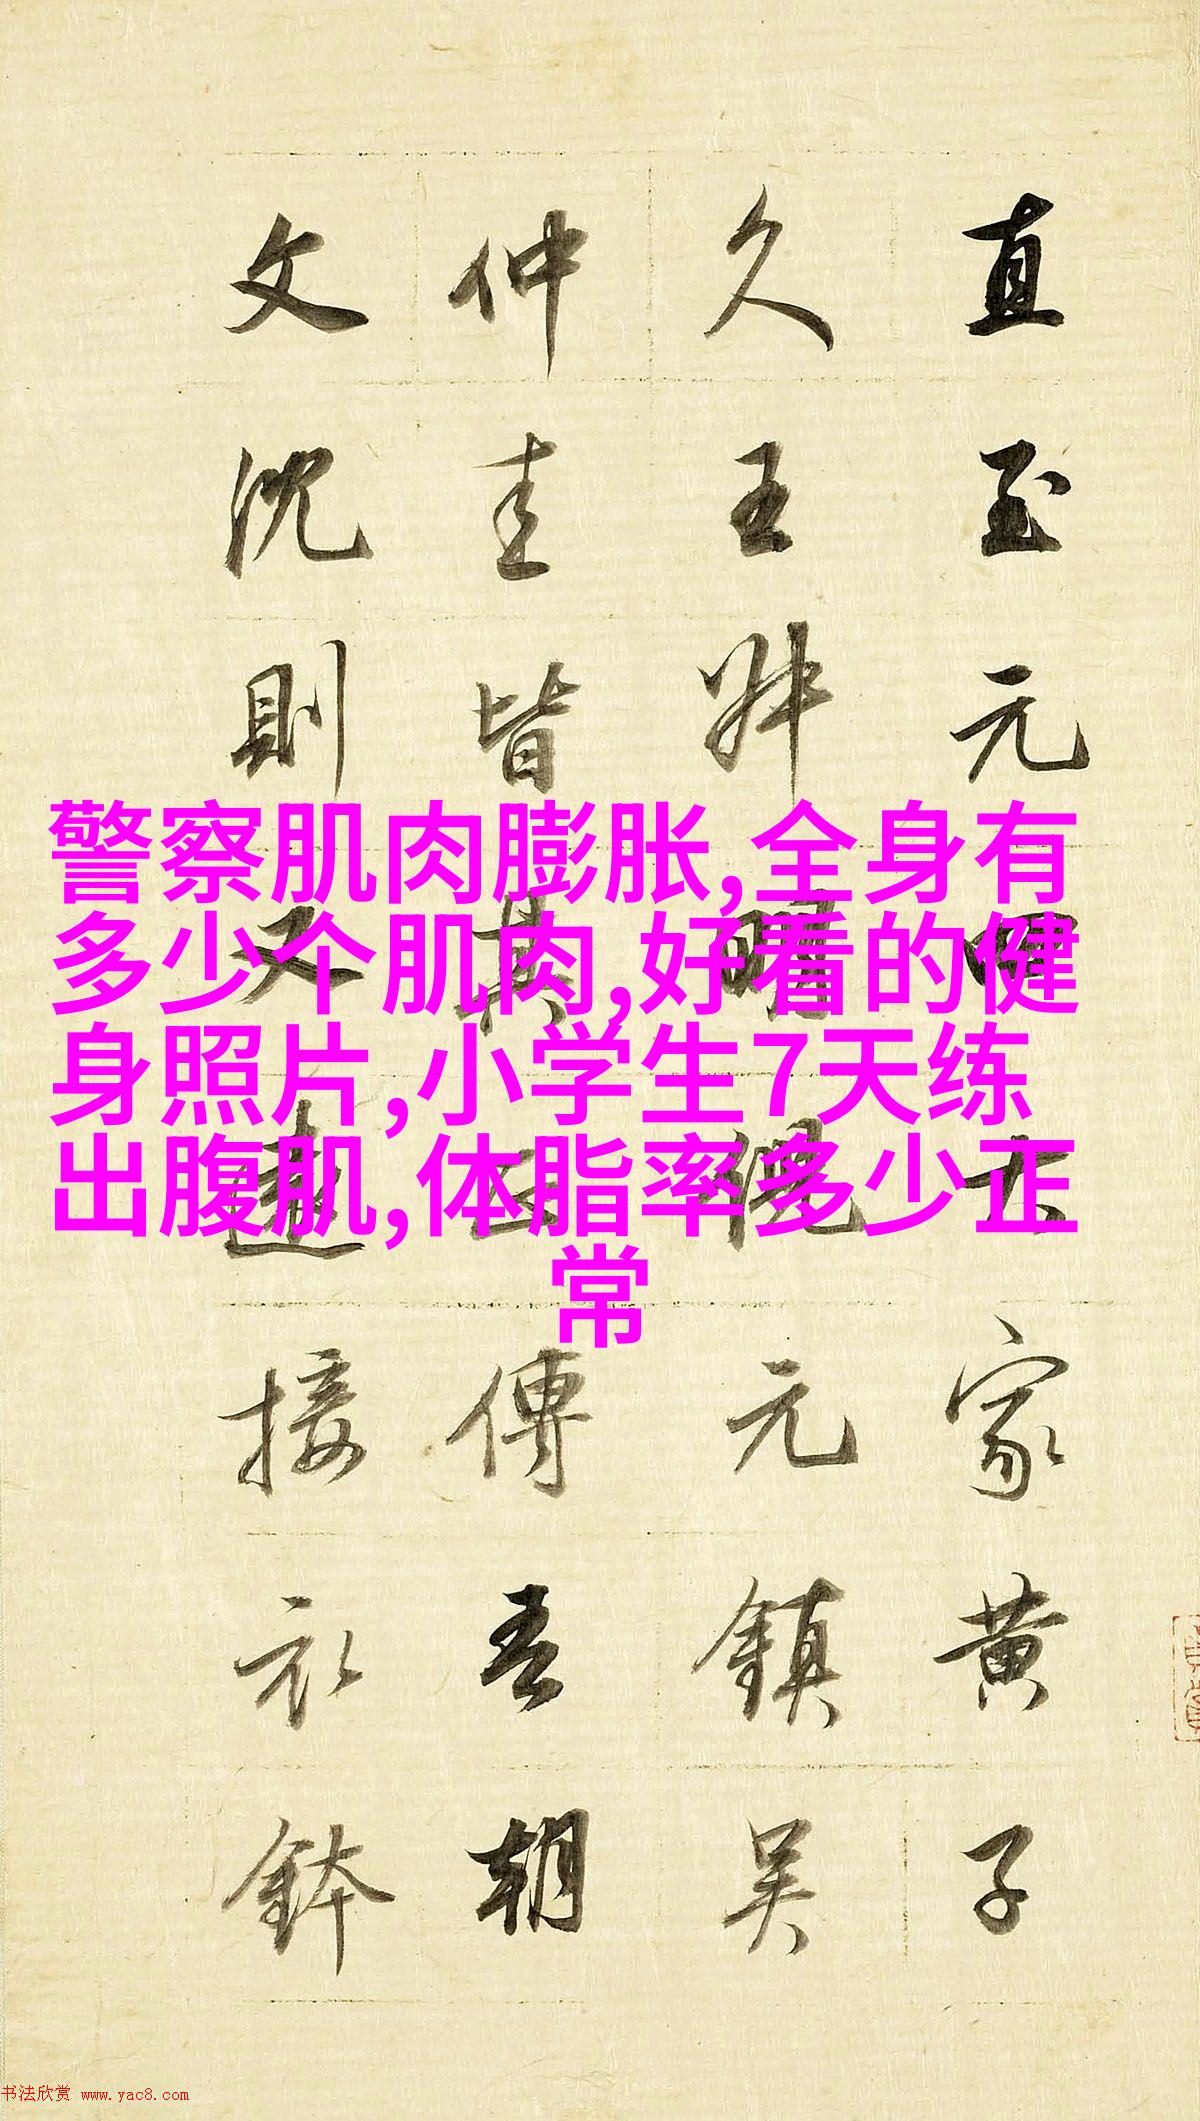 直至元四大家黃子
久王叔明倪元鎮吳
仲圭皆其正傳吾朝
文沈則又遠接衣鉢
警察肌肉膨胀,全身有
多少个肌肉,好看的健
身照片,小学生7天练
出腹肌,体脂率多少正
常
书法欣赏 www.yac8.com